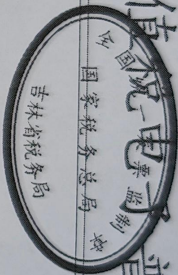 值税电子普
全国统一发票监制章
国家税务总局
吉林省税务局